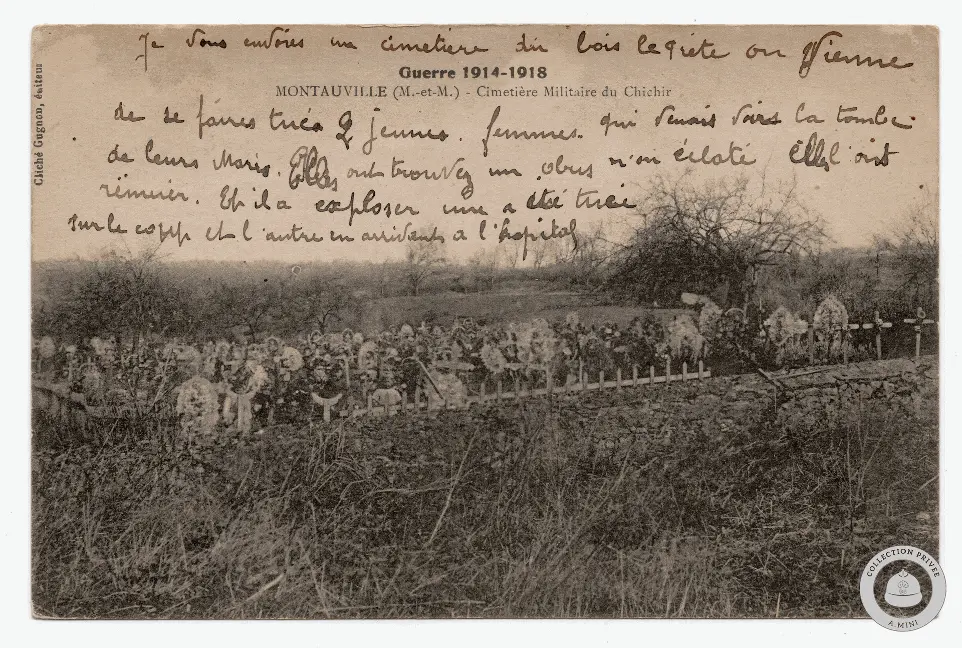 Je vous envoies un cimetière du bois le on Vienne
Guerre 1914-1918
MONTAUVILLE (M.-et-M.) - Cimetière Militaire du Chichir
de se faires tuéa 2 jeunes. femmes. qui venais voirs la tombe
de leurs Maris. Elles ont trouvez un obus n'on éclaté, Elles l'ont
rémuér. Et il a exploser une a été tuéi
sur le copp et l'autre en arrivents a l'hopital
Cliché Gugnon, éditeur
COLLECTION PRIVEE
A.MINI